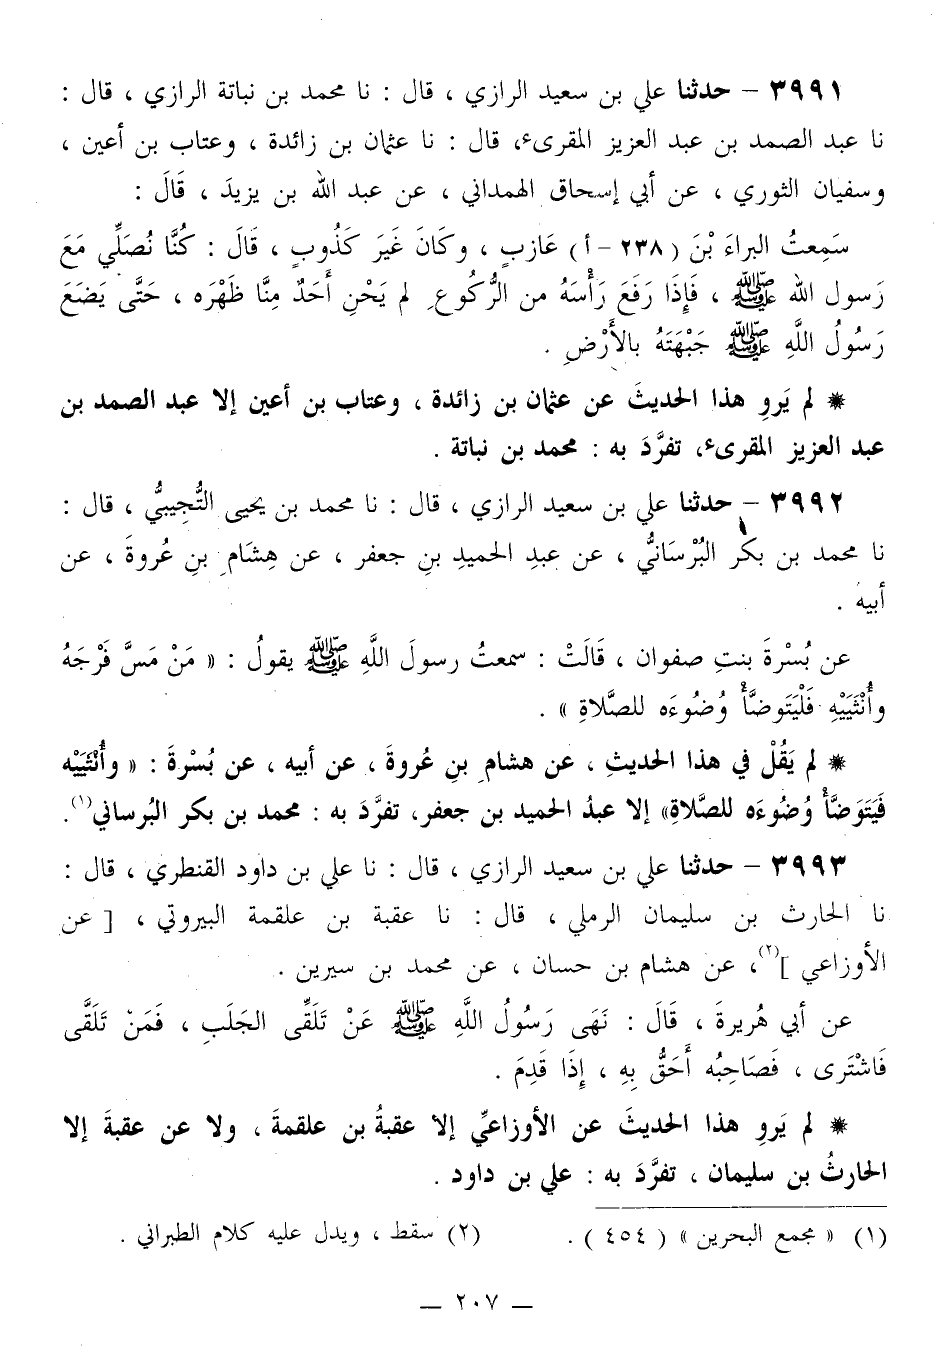 ٣٩٩١ – حدثنا علي بن سعيد الرازي ، قال : نا محمد بن نباتة الرازي ، قال :
نا عبد الصمد بن عبد العزيز المقرىء، قال : نا عثمان بن زائدة ، وعتاب بن أعين ،
وسفيان الثوري ، عن أبي إسحاق الهمداني ، عن عبد الله بن يزيدَ ، قَالَ :
سَمِعتُ البراءَ بْنَ ( ٢٣٨ – أ ) عَازبٍ ، وكَانَ غَيَر كَذُوبٍ ، قَالَ : كُنَّا نُصَلِّي مَعَ
رَسول الله ﷺ ، فَإِذَا رَفَعَ رَأْسَهُ من الرُّكُوعِ لم يَحْنِ أَحَدٌ مِنَّا ظَهْرَه ، حَتَّى يَضَعَ
رَسُولُ اللَّهِ ﷺ جَبْهَتَهُ بالأَرْضِ .
* لم يَروِ هذا الحديثَ عن عثمان بن زائدة ، وعتاب بن أعين إلا عبد الصمد بن
عبد العزيز المقرىء، تفرَّدَ به : محمد بن نباتة .
٣٩٩٢ – حدثنا علي بن سعيد الرازي ، قال : نا محمد بن يحيى التُّجِيبيُّ ، قال :
نا محمد بن بكر البُرْسَانيُّ ، عن عبدِ الحميدِ بنِ جعفر ، عن هِشَامِ بنِ عُروةَ ، عن
أبيه .
عن بُسْرةَ بنتِ صفوان ، قَالَتْ : سمعتُ رسولَ اللَّهِ ﷺ يقولُ : « مَنْ مَسَّ فَرْجَهُ
وأُنْثَيَيْهِ فَلْيَتَوضَّأْ وُضُوءَه للصَّلاةِ » .
* لم يَقُلْ في هذا الحديثِ ، عن هشامِ بنِ عُروةَ ، عن أبيه ، عن بُسْرةَ : « وأُنْثَيَيْه
فَيَتَوَضَّأْ وُضُوءَه للصَّلاةِ» إلا عبدُ الحميد بن جعفر، تفرَّدَ به : محمد بن بكر البُرساني(١).
٣٩٩٣ – حدثنا علي بن سعيد الرازي ، قال : نا علي بن داود القنطري ، قال :
نا الحارث بن سليمان الرملي ، قال : نا عقبة بن علقمة البيروتي ، [ عن
الأوزاعي ](٢)، عن هشام بن حسان ، عن محمد بن سيرين .
عن أبي هُريرةَ ، قَالَ : نَهَى رَسُولُ اللَّهِ ﷺ عَنْ تَلَقِّى الجَلَبِ ، فَمَنْ تَلَقَّى
فَاشْتَرى ، فَصَاحِبُه أَحَقُّ بِهِ ، إِذَا قَدِمَ .
* لم يَروِ هذا الحديثَ عن الأوزاعيِّ إلا عقبةُ بن علقمةَ ، ولا عن عقبةَ إلا
الحارثُ بن سليمان ، تفرَّدَ به : علي بن داود .
(١) « مجمع البحرين » ( ٤٥٤ ) . (٢) سقط ، ويدل عليه كلام الطبراني .
— ٢٠٧ —